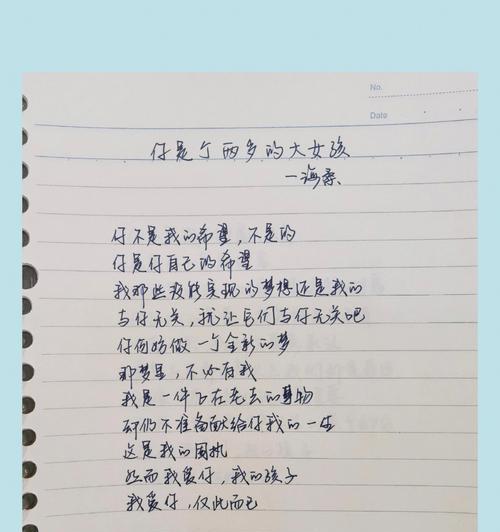 No.
Date
仔是个两岁的大女孩
—海桑
仔不是我的希望，不是的
仔是仔自己的希望
我那些没能实现的梦想还是我的
与仔无关，就让它们与仔无关吧
仔何妨做一个全新的梦
那梦里，不必有我
我是一件正在老去的事物
却仍不准备献给仔我的一生
这是我的固执
然而我爱仔，我的孩子
我爱仔，仅此而已